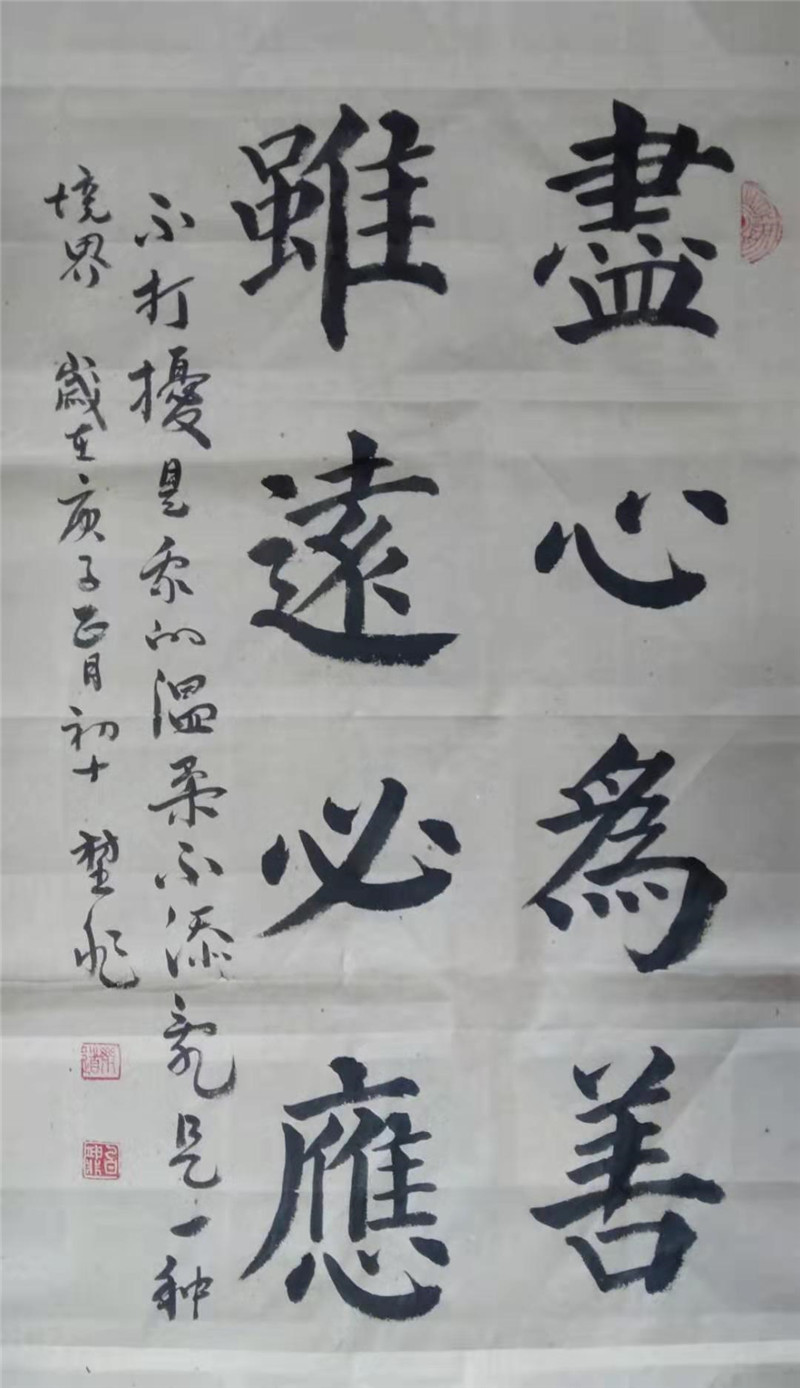 盡心為善
雖遠必應
不打擾是我的溫柔不添亂是一種
境界 歲在庚子正月初十